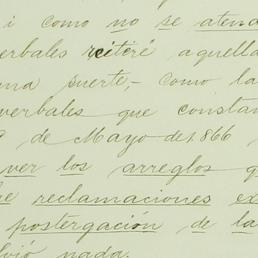 i como no se atend
erbales reiteré aquella
una suerte,- como la
verbales que constan
de Mayo de 1.866
ver los arreglos q
e reclamaciones ex
postergación de la
lvió nada.